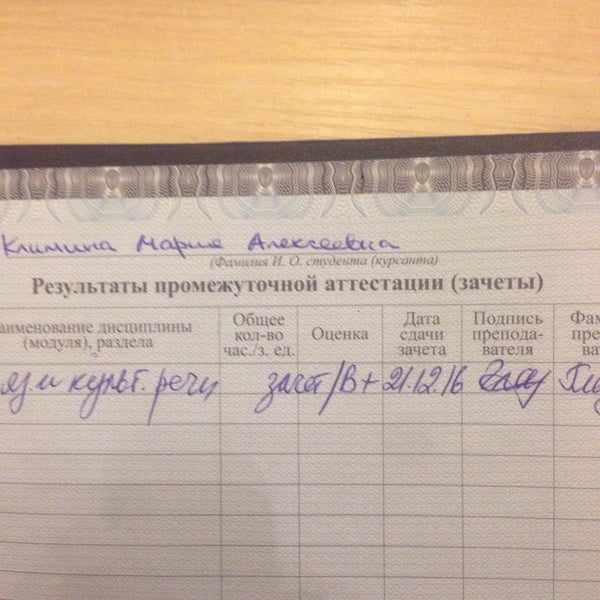 Климина Мария Алексеевна
(Фамилия И. О. студента (курсанта)
Результаты промежуточной аттестации (зачеты)
аименование дисциплины (модуля), раздела
Общее кол-во час./з. ед.
Оценка
Дата сдачи зачета
Подпись препода-вателя
Фам пре ва
яз. и культ. речи зачет/В+ 21.12.16